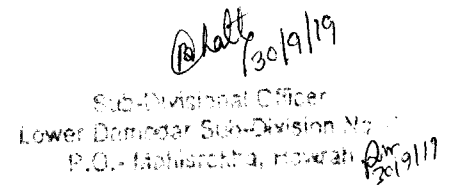 Bhatt
30/9/19
Sub-Divisional Officer
Lower Damodar Sub-Division No
P.O.- Mahisrekha, Howrah
30/9/19